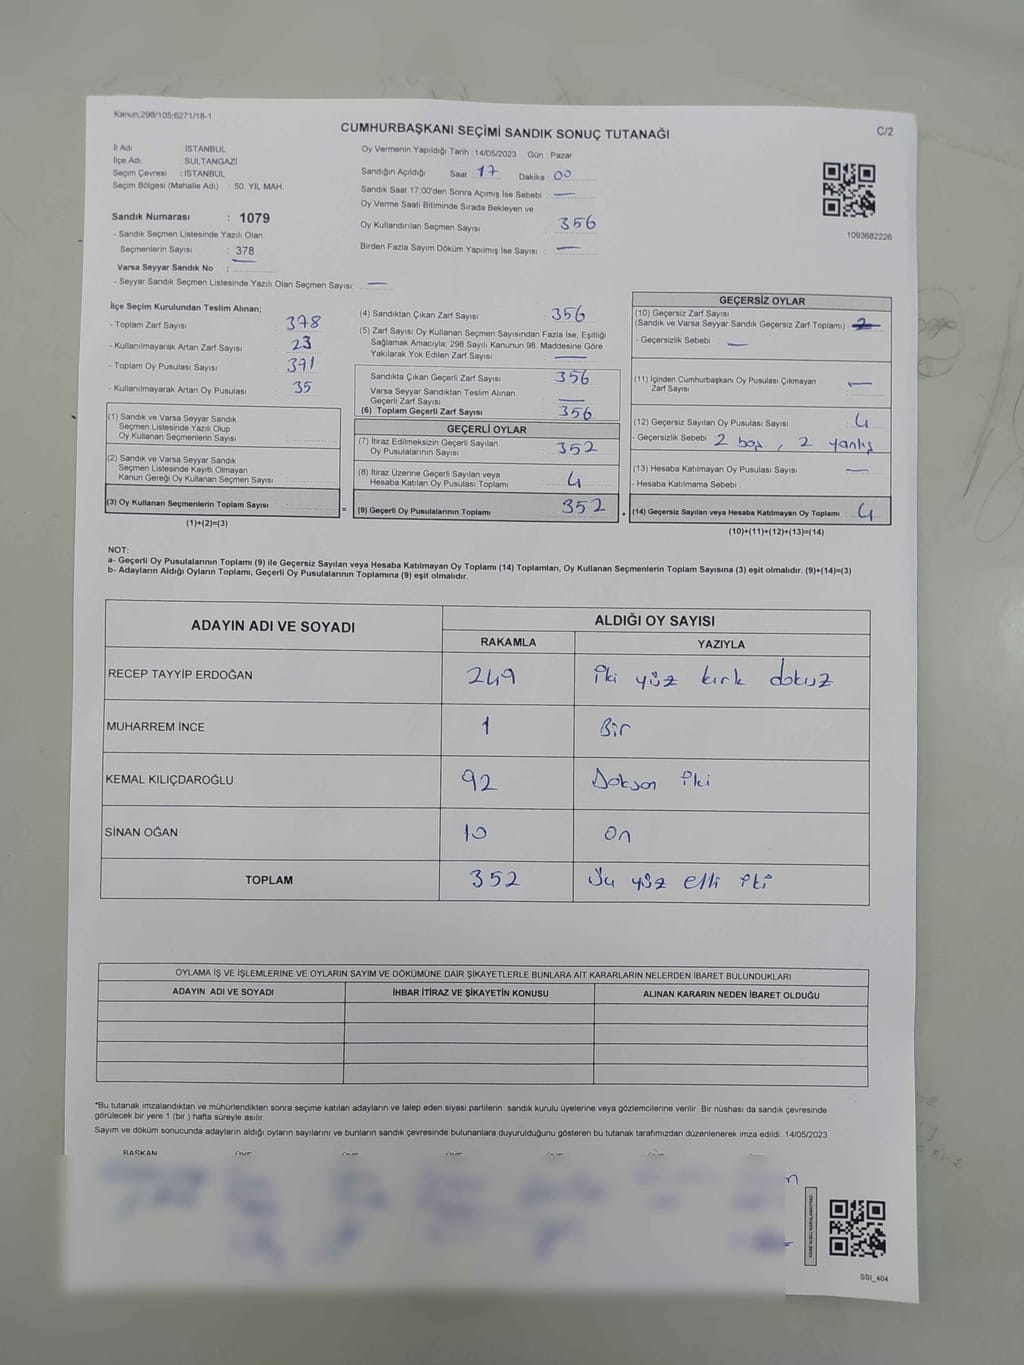 Kanun;298/105;6271/18-1
CUMHURBAŞKANI SEÇİMİ SANDIK SONUÇ TUTANAĞI
C/2
İl Adı : İSTANBUL
İlçe Adı : SULTANGAZİ
Seçim Çevresi : İSTANBUL
Seçim Bölgesi (Mahalle Adı) : 50. YIL MAH.
Sandık Numarası : 1079
- Sandık Seçmen Listesinde Yazılı Olan
Seçmenlerin Sayısı : 378
Varsa Seyyar Sandık No :
- Seyyar Sandık Seçmen Listesinde Yazılı Olan Seçmen Sayısı: —
Oy Vermenin Yapıldığı Tarih : 14/05/2023 Gün : Pazar
Sandığın Açıldığı Saat : 17 Dakika : 00
Sandık Saat 17:00'den Sonra Açımış İse Sebebi : —
Oy Verme Saati Bitiminde Sırada Bekleyen ve
Oy Kullandırılan Seçmen Sayısı : 356
Birden Fazla Sayım Döküm Yapılmış İse Sayısı : —
1093682226
İlçe Seçim Kurulundan Teslim Alınan;
- Toplam Zarf Sayısı : 378
- Kullanılmayarak Artan Zarf Sayısı : 23
- Toplam Oy Pusulası Sayısı : 391
- Kullanılmayarak Artan Oy Pusulası : 35
(1) Sandık ve Varsa Seyyar Sandık
Seçmen Listesinde Yazılı Olup
Oy Kullanan Seçmenlerin Sayısı :
(2) Sandık ve Varsa Seyyar Sandık
Seçmen Listesinde Kayıtlı Olmayan
Kanun Gereği Oy Kullanan Seçmen Sayısı :
(3) Oy Kullanan Seçmenlerin Toplam Sayısı :
(1)+(2)=(3)
(4) Sandıktan Çıkan Zarf Sayısı : 356
(5) Zarf Sayısı Oy Kullanan Seçmen Sayısından Fazla İse, Eşitliği
Sağlamak Amacıyla; 298 Sayılı Kanunun 98. Maddesine Göre
Yakılarak Yok Edilen Zarf Sayısı : —
Sandıkta Çıkan Geçerli Zarf Sayısı : 356
Varsa Seyyar Sandıktan Teslim Alınan
Geçerli Zarf Sayısı : —
(6) Toplam Geçerli Zarf Sayısı : 356
GEÇERLİ OYLAR
(7) İtiraz Edilmeksizin Geçerli Sayılan
Oy Pusulalarının Sayısı : 352
(8) İtiraz Üzerine Geçerli Sayılan veya
Hesaba Katılan Oy Pusulası Toplamı : 4
= (9) Geçerli Oy Pusulalarının Toplamı : 352
GEÇERSİZ OYLAR
(10) Geçersiz Zarf Sayısı
(Sandık ve Varsa Seyyar Sandık Geçersiz Zarf Toplamı) :
- Geçersizlik Sebebi : —
(11) İçinden Cumhurbaşkanı Oy Pusulası Çıkmayan
Zarf Sayısı : —
(12) Geçersiz Sayılan Oy Pusulası Sayısı : 4
- Geçersizlik Sebebi : 2 boş, 2 yanlış
(13) Hesaba Katılmayan Oy Pusulası Sayısı : —
- Hesaba Katılmama Sebebi :
+ (14) Geçersiz Sayılan veya Hesaba Katılmayan Oy Toplamı : 4
(10)+(11)+(12)+(13)=(14)
NOT:
a- Geçerli Oy Pusulalarının Toplamı (9) ile Geçersiz Sayılan veya Hesaba Katılmayan Oy Toplamı (14) Toplamları, Oy Kullanan Seçmenlerin Toplam Sayısına (3) eşit olmalıdır. (9)+(14)=(3)
b- Adayların Aldığı Oyların Toplamı, Geçerli Oy Pusulalarının Toplamına (9) eşit olmalıdır.
ADAYIN ADI VE SOYADI ALDIĞI OY SAYISI
RAKAMLA YAZIYLA
RECEP TAYYİP ERDOĞAN 249 iki yüz kırk dokuz
MUHARREM İNCE 1 Bir
KEMAL KILIÇDAROĞLU 92 Doksan iki
SİNAN OĞAN 10 on
TOPLAM 352 Üç yüz elli iki
OYLAMA İŞ VE İŞLEMLERİNE VE OYLARIN SAYIM VE DÖKÜMÜNE DAİR ŞİKAYETLERLE BUNLARA AİT KARARLARIN NELERDEN İBARET BULUNDUKLARI
ADAYIN ADI VE SOYADI İHBAR İTİRAZ VE ŞİKAYETİN KONUSU ALINAN KARARIN NEDEN İBARET OLDUĞU
*Bu tutanak imzalandıktan ve mühürlendikten sonra seçime katılan adayların ve talep eden siyasi partilerin sandık kurulu üyelerine veya gözlemcilerine verilir. Bir nüshası da sandık çevresinde
görülecek bir yere 1 (bir ) hafta süreyle asılır.
Sayım ve döküm sonucunda adayların aldığı oyların sayılarını ve bunların sandık çevresinde bulunanlara duyurulduğunu gösteren bu tutanak tarafımızdan düzenlenerek imza edildi. 14/05/2023
BAŞKAN
SSI_404